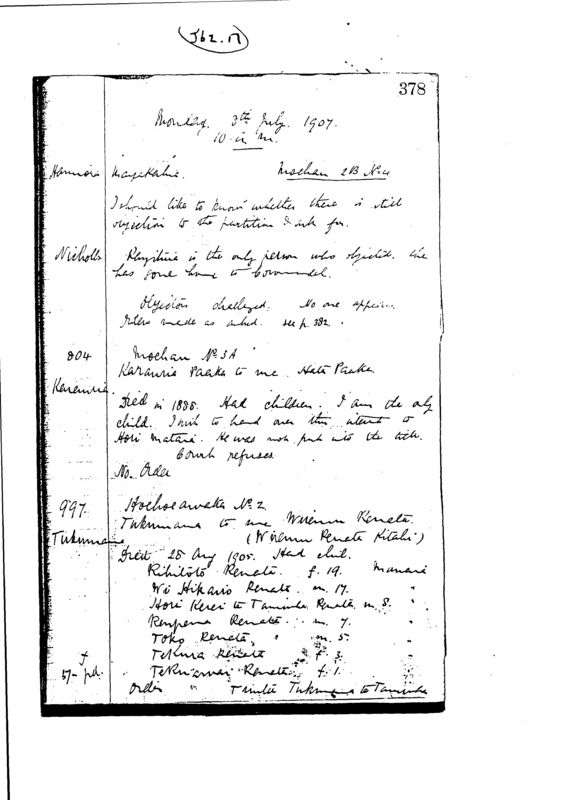 J62.17
378
Monday. 3th July. 1907.
10 a m.
Moehau 2B No 4
I should like to know whether there is still
objection to the partition I ask for.
Nicholls is the only person who objected. She
has gone home to Coromandel.
Objectors challenged. No one appears.
Orders made as asked. see p. 382.
804 Moehau No 3A
Karauria Paaka to me Hata Paaka
Karauria
Died in 1885. Had children. I am the only
child. I wish to hand over this interest to
Hori Matari. He was not put into the title.
Court refuses
No Order
997 No 2
Tukumana to me Wiremu Renata.
Tukumana (Wiremu Renata Kitahi)
Died 25 Aug 1905. Had chil.
Rihitoto Renata. f. 19.
Wi Hikairo Renata. m. 17. "
Hori Kerei to Taniwha Renata. m. 8. "
Renata m. 7. "
Toko Renata, " m. 5. "
Renata f. 3. "
Renata, f. 1. "
Order " Tukumana to Taniwha